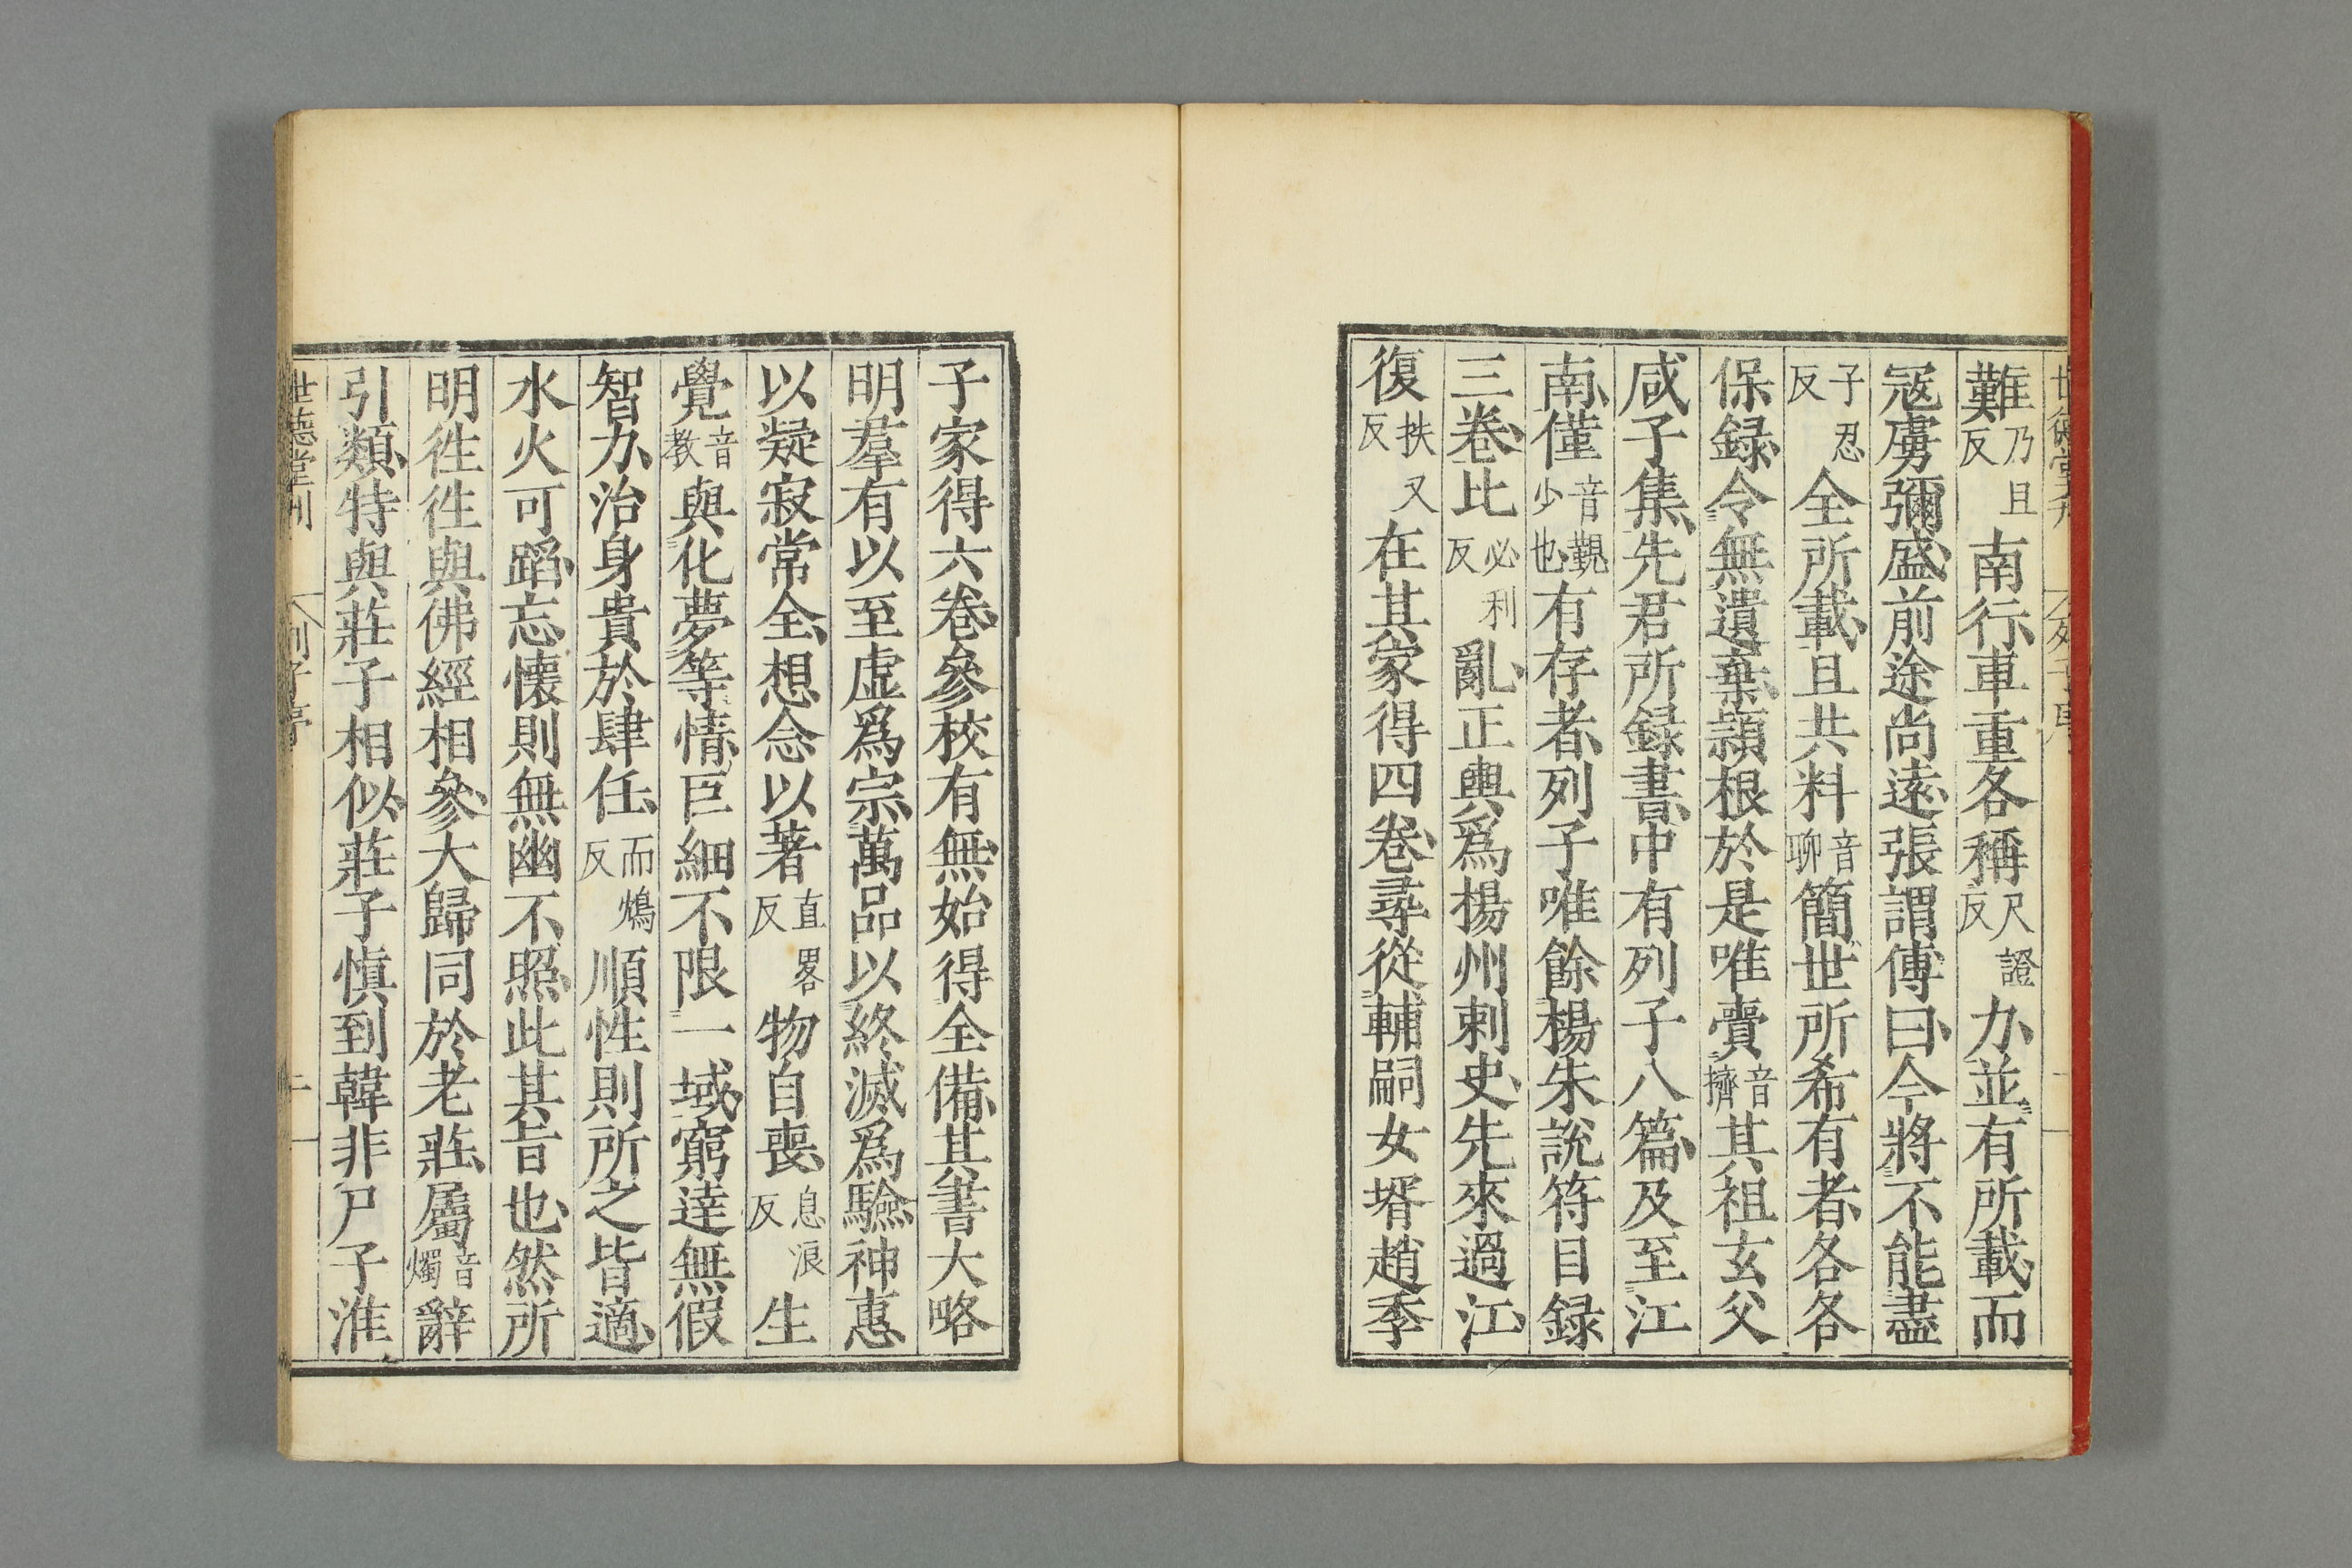 難乃且反南行車重各稱尺證反力並有所載而
寇虜彌盛前途尚遠張謂傅曰今將不能盡
子忍反全所載且共料音聊簡世所希有者各各
保録令無遺棄頴根於是唯賷音擠其祖玄父
咸子集先君所録書中有列子八篇及至江
南僅音覲少也有存者列子唯餘楊朱說符目録
三卷比必利反亂正輿爲揚州刺史先來過江
復扶又反在其家得四卷尋從輔嗣女壻趙季
子家得六卷參校有無始得全備其書大略
明羣有以至虚爲宗萬品以終滅爲驗神惠
以凝寂常全想念以著直畧反物自喪息浪反生
覺音教與化夢等情巨細不限一域窮達無假
智力治身貴於肆任而鴆反順性則所之皆適
水火可蹈忘懷則無幽不照此其旨也然所
明徃徃與佛經相參大歸同於老莊屬音燭辭
引類特與莊子相似莊子慎到韓非尸子淮
世德堂刊